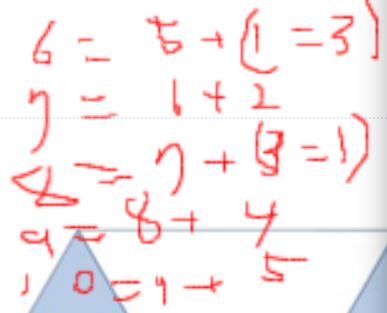 6 = 5 + (1 = 3)
7 = 6 + 2
8 = 7 + (3 = 1)
9 = 8 + 4
10 = 9 + 5